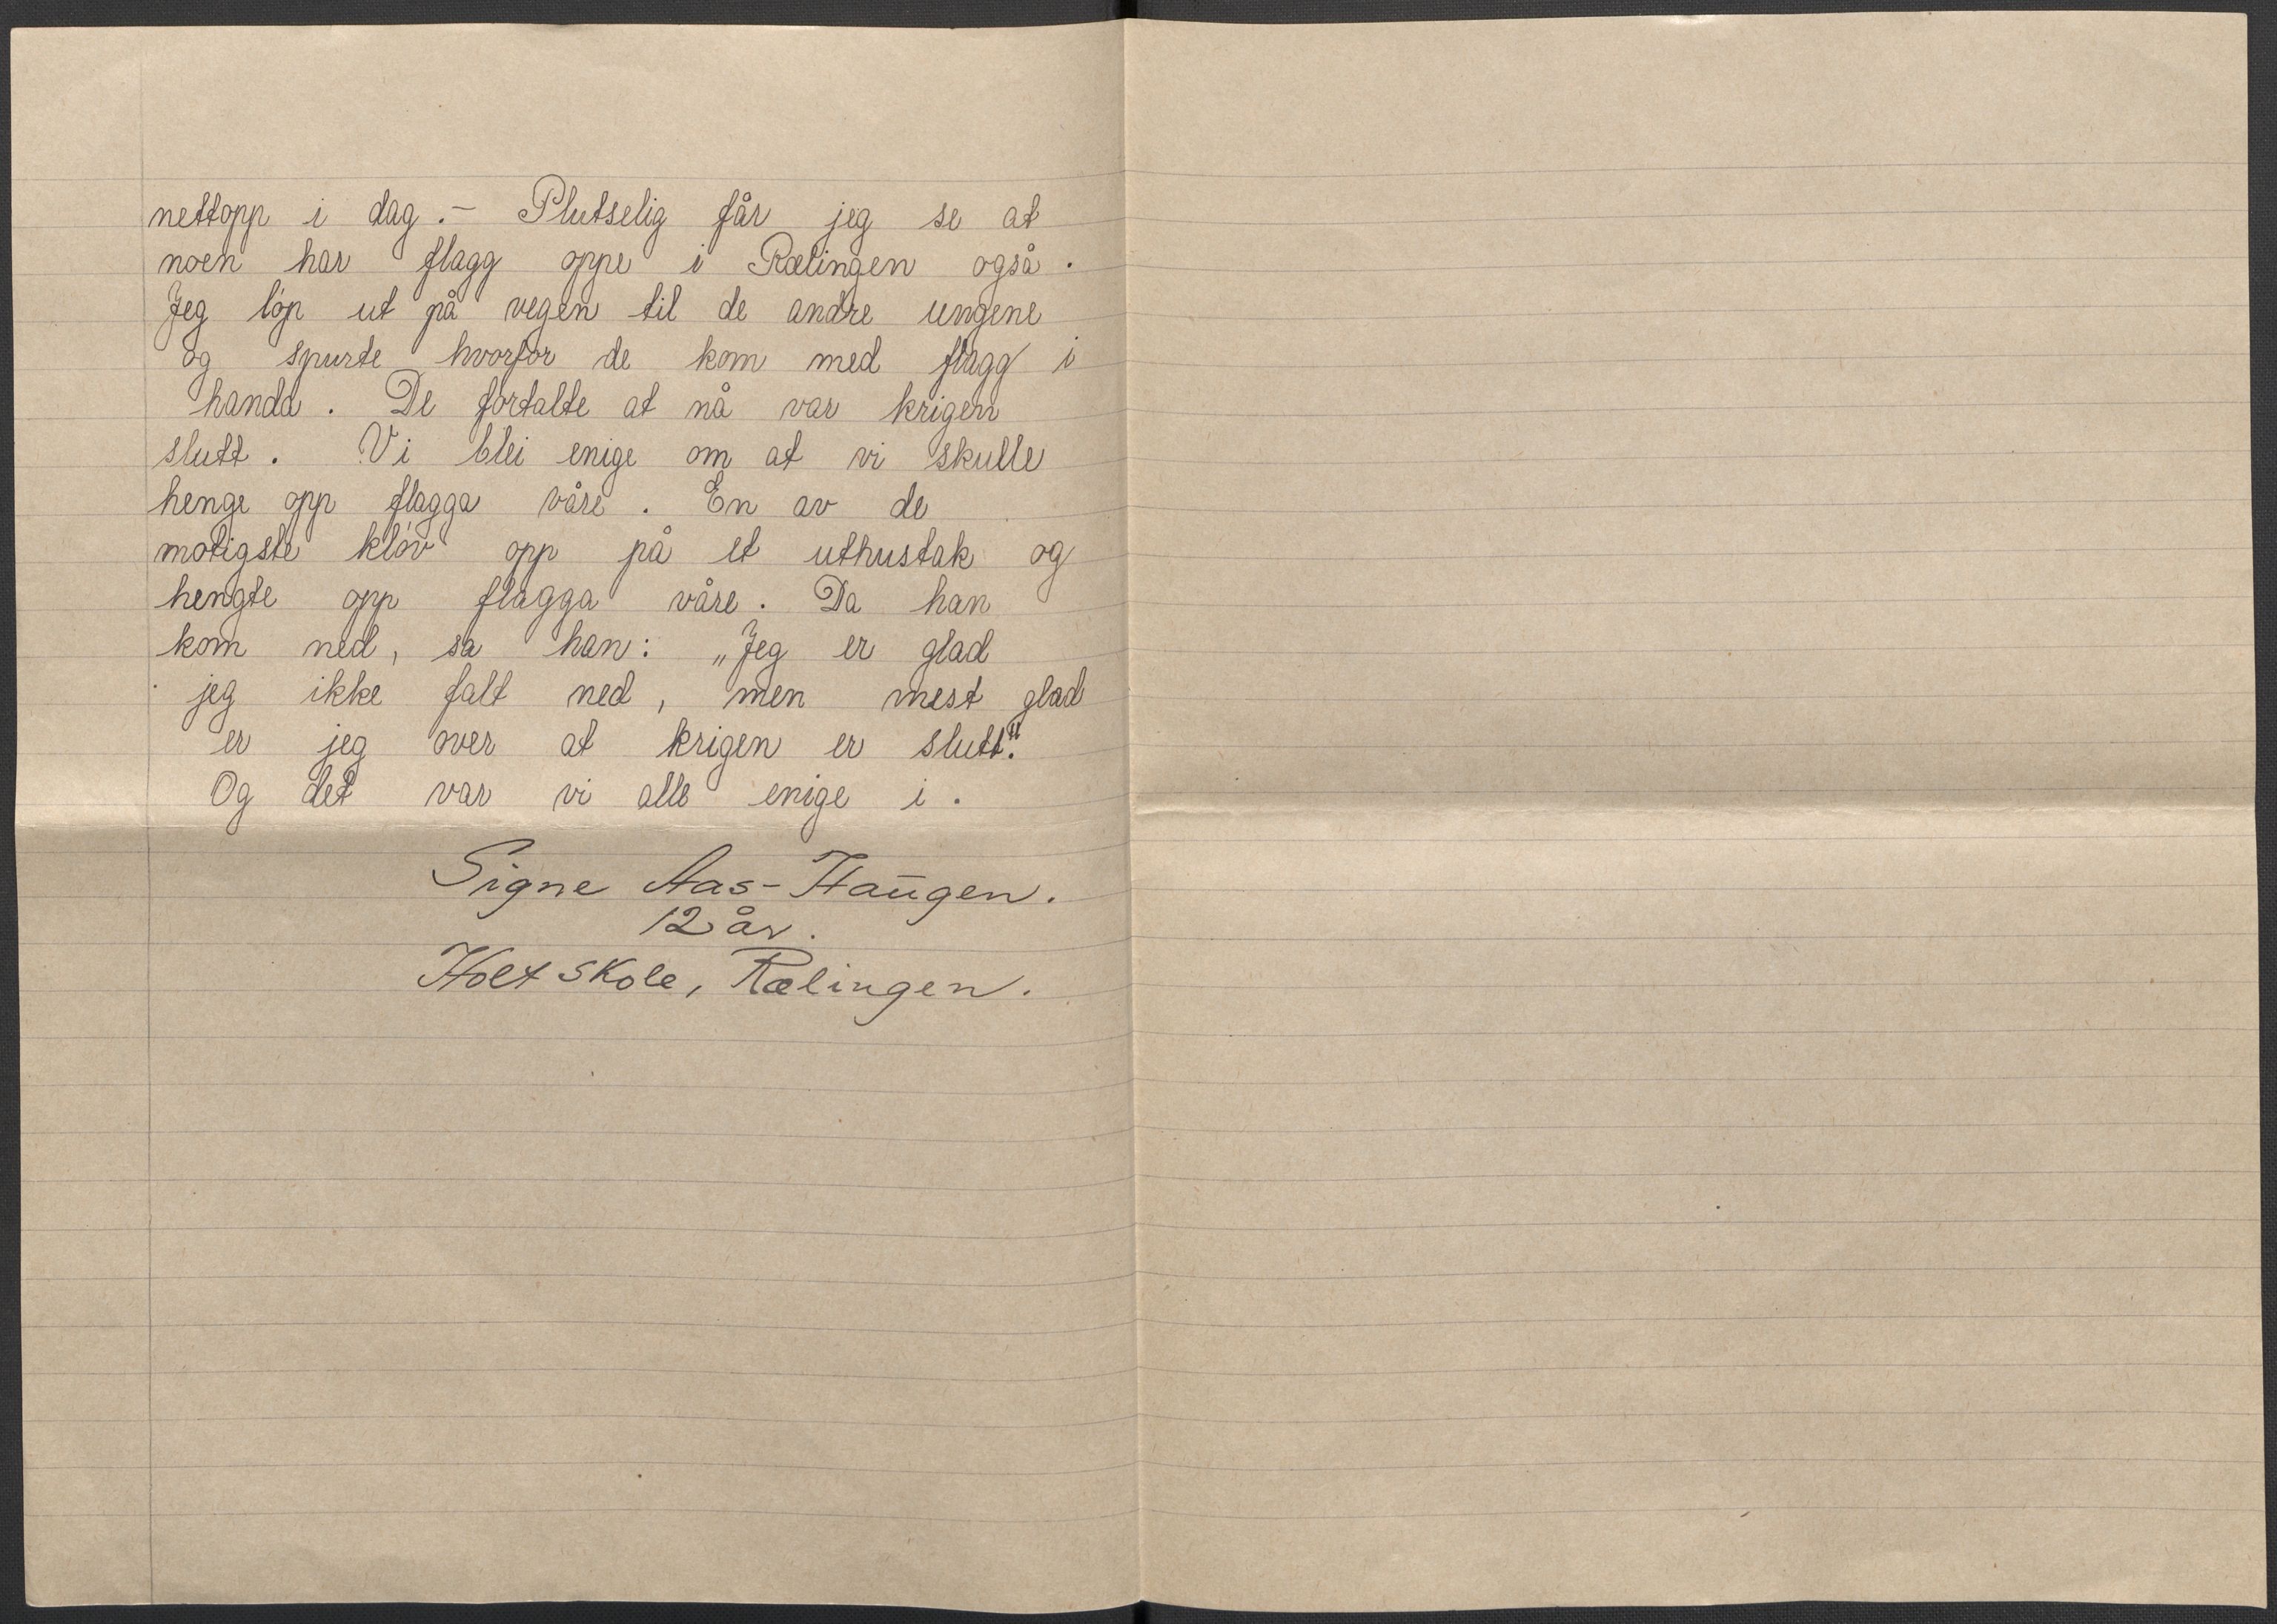 nettopp i dag. – Plutselig får jeg se at
noen har flagg oppe i Rælingen også.
Jeg løp ut på vegen til de andre ungene
og spurte hvorfor de kom med flagg i
handa. De fortalte at nå var krigen
slutt. Vi blei enige om at vi skulle
henge opp flagga våre. En av de
motigste kløv opp på et uthustak og
hengte opp flagga våre. Da han
kom ned, sa han: „Jeg er glad
jeg ikke falt ned, men mest glad
er jeg over at krigen er slutt."
Og det var vi alle enige i.
Signe Aas-Haugen.
12 år.
Holt skole, Rælingen.